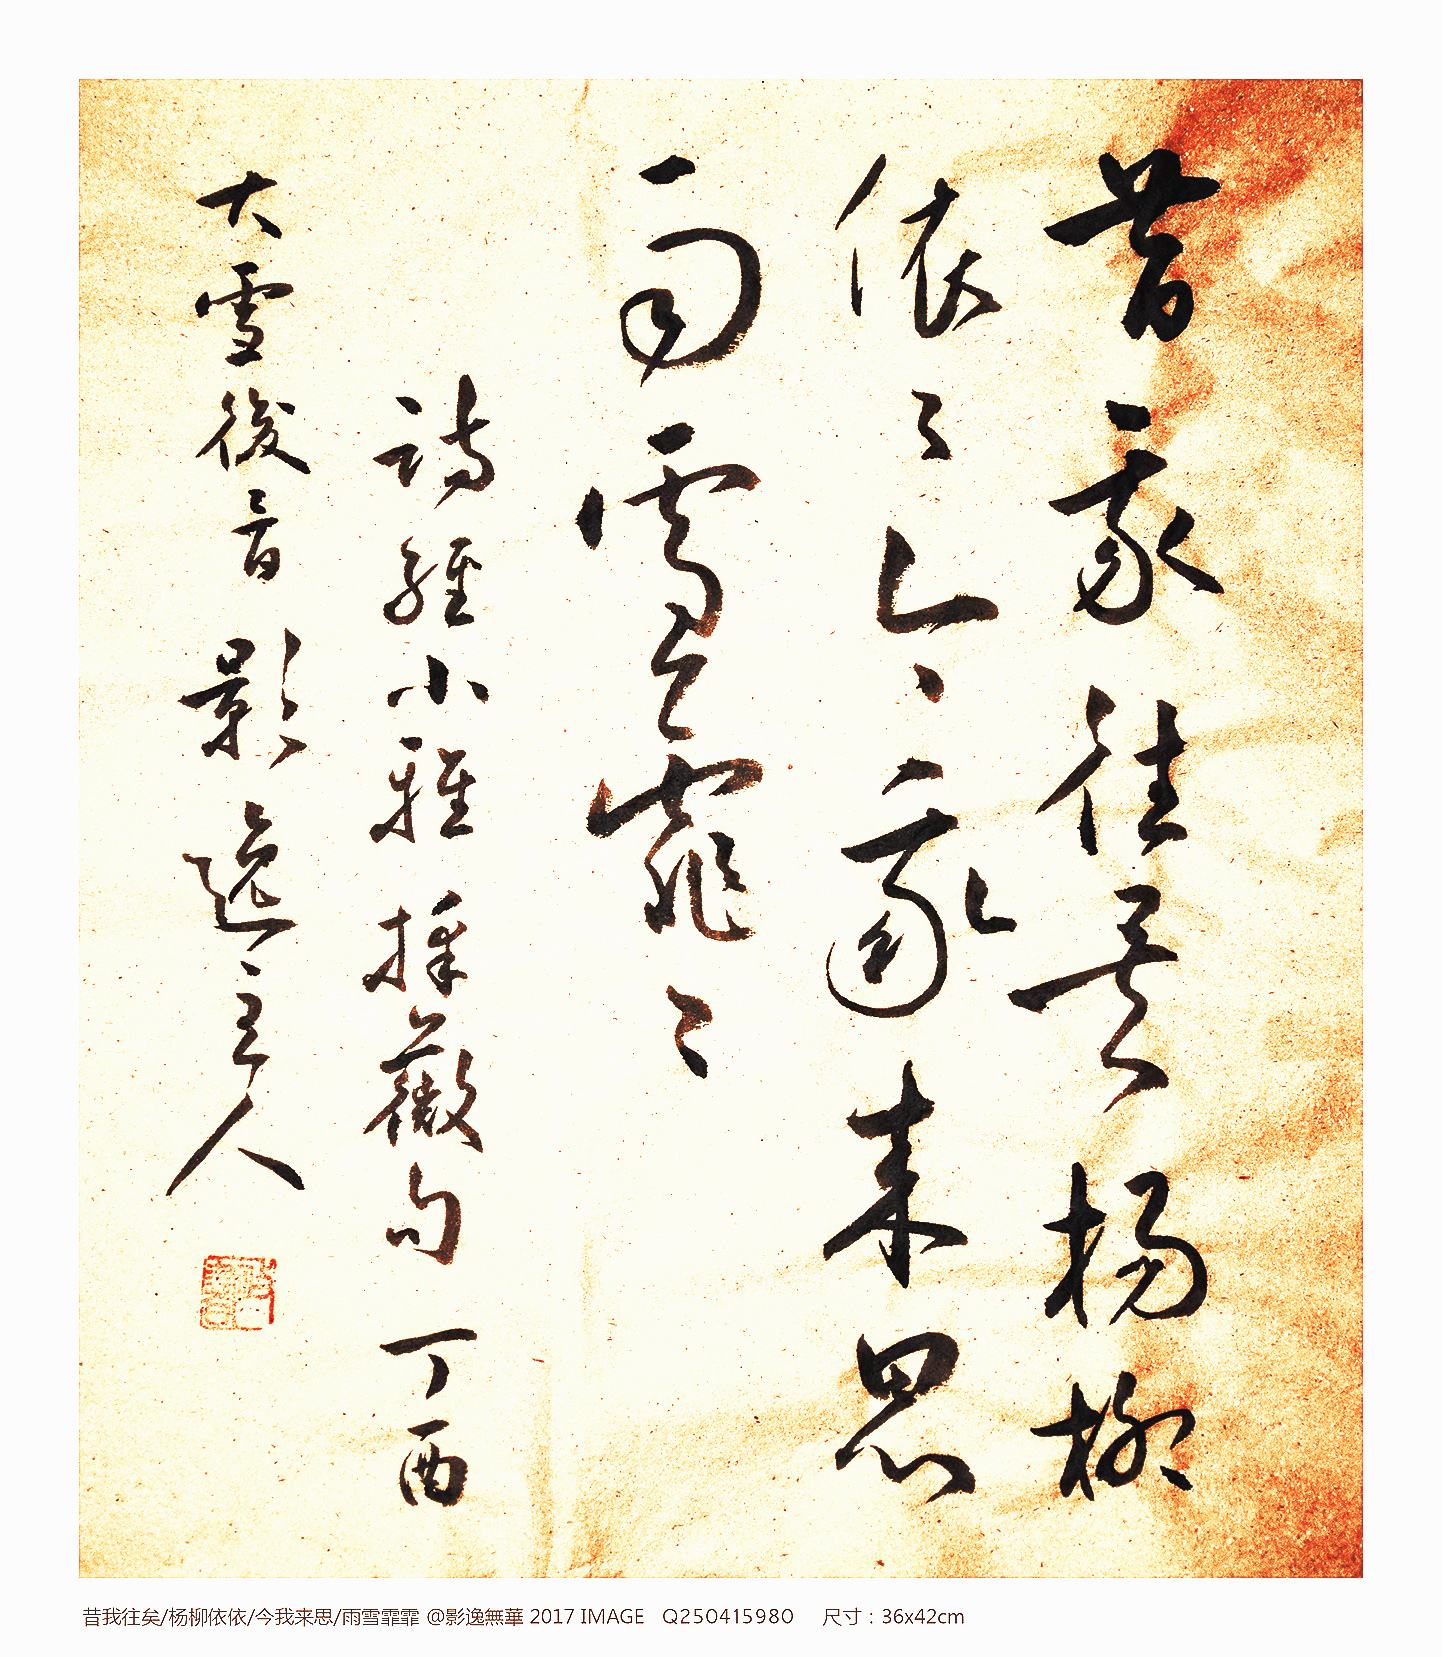 昔我往矣楊柳
依々今我來思
雨雪霏々
詩經小雅採薇句丁酉
大雪後一日影逸主人
昔我往矣/杨柳依依/今我来思/雨雪霏霏 @影逸無華 2017 IMAGE Q250415980 尺寸：36x42cm